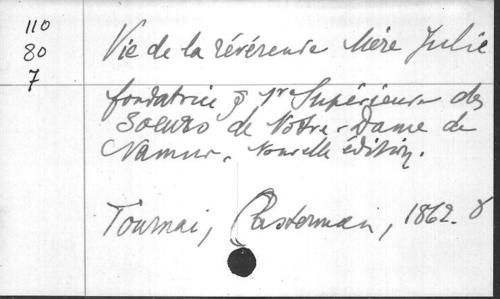 110
80
7
Vie de la révérende Mère Julie
fondatrice & 1re Supérieure des
Soeurs de Notre-Dame de
Namur. Nouvelle édition.
Tournai, Casterman, 1862. 8